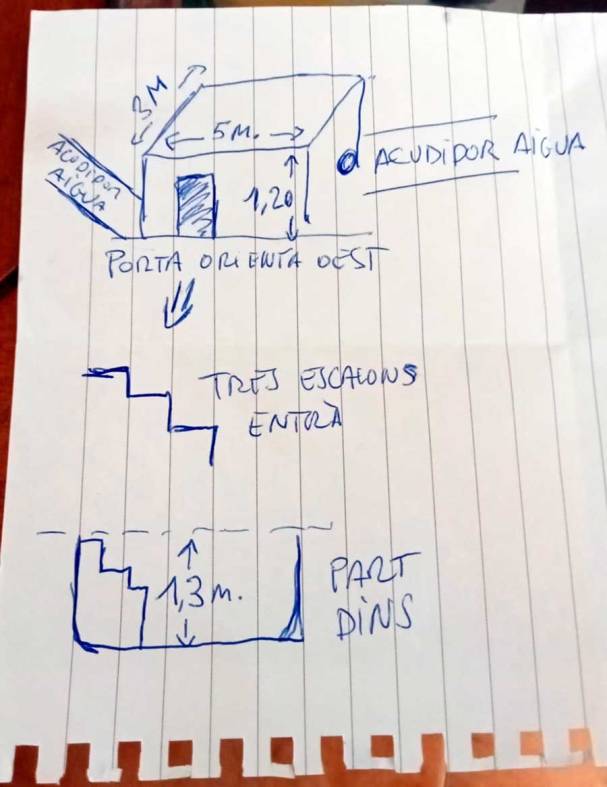 3M
5M.
ACUDIDOR
AIGUA
ACUDIDOR AIGUA
1,20
PORTA ORIENTA OEST
TRES ESCALONS
ENTRÀ
1,3 M.
PART
DINS